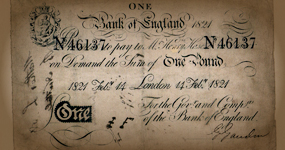 ONE
Bank of England 1821
No 46137 No 46137
to pay to Mr Henry Hase
on Demand the Sum of One Pound
1821 Feby 14 London 14 Feby 1821
For the Govr and Compa
of the Bank of England
One